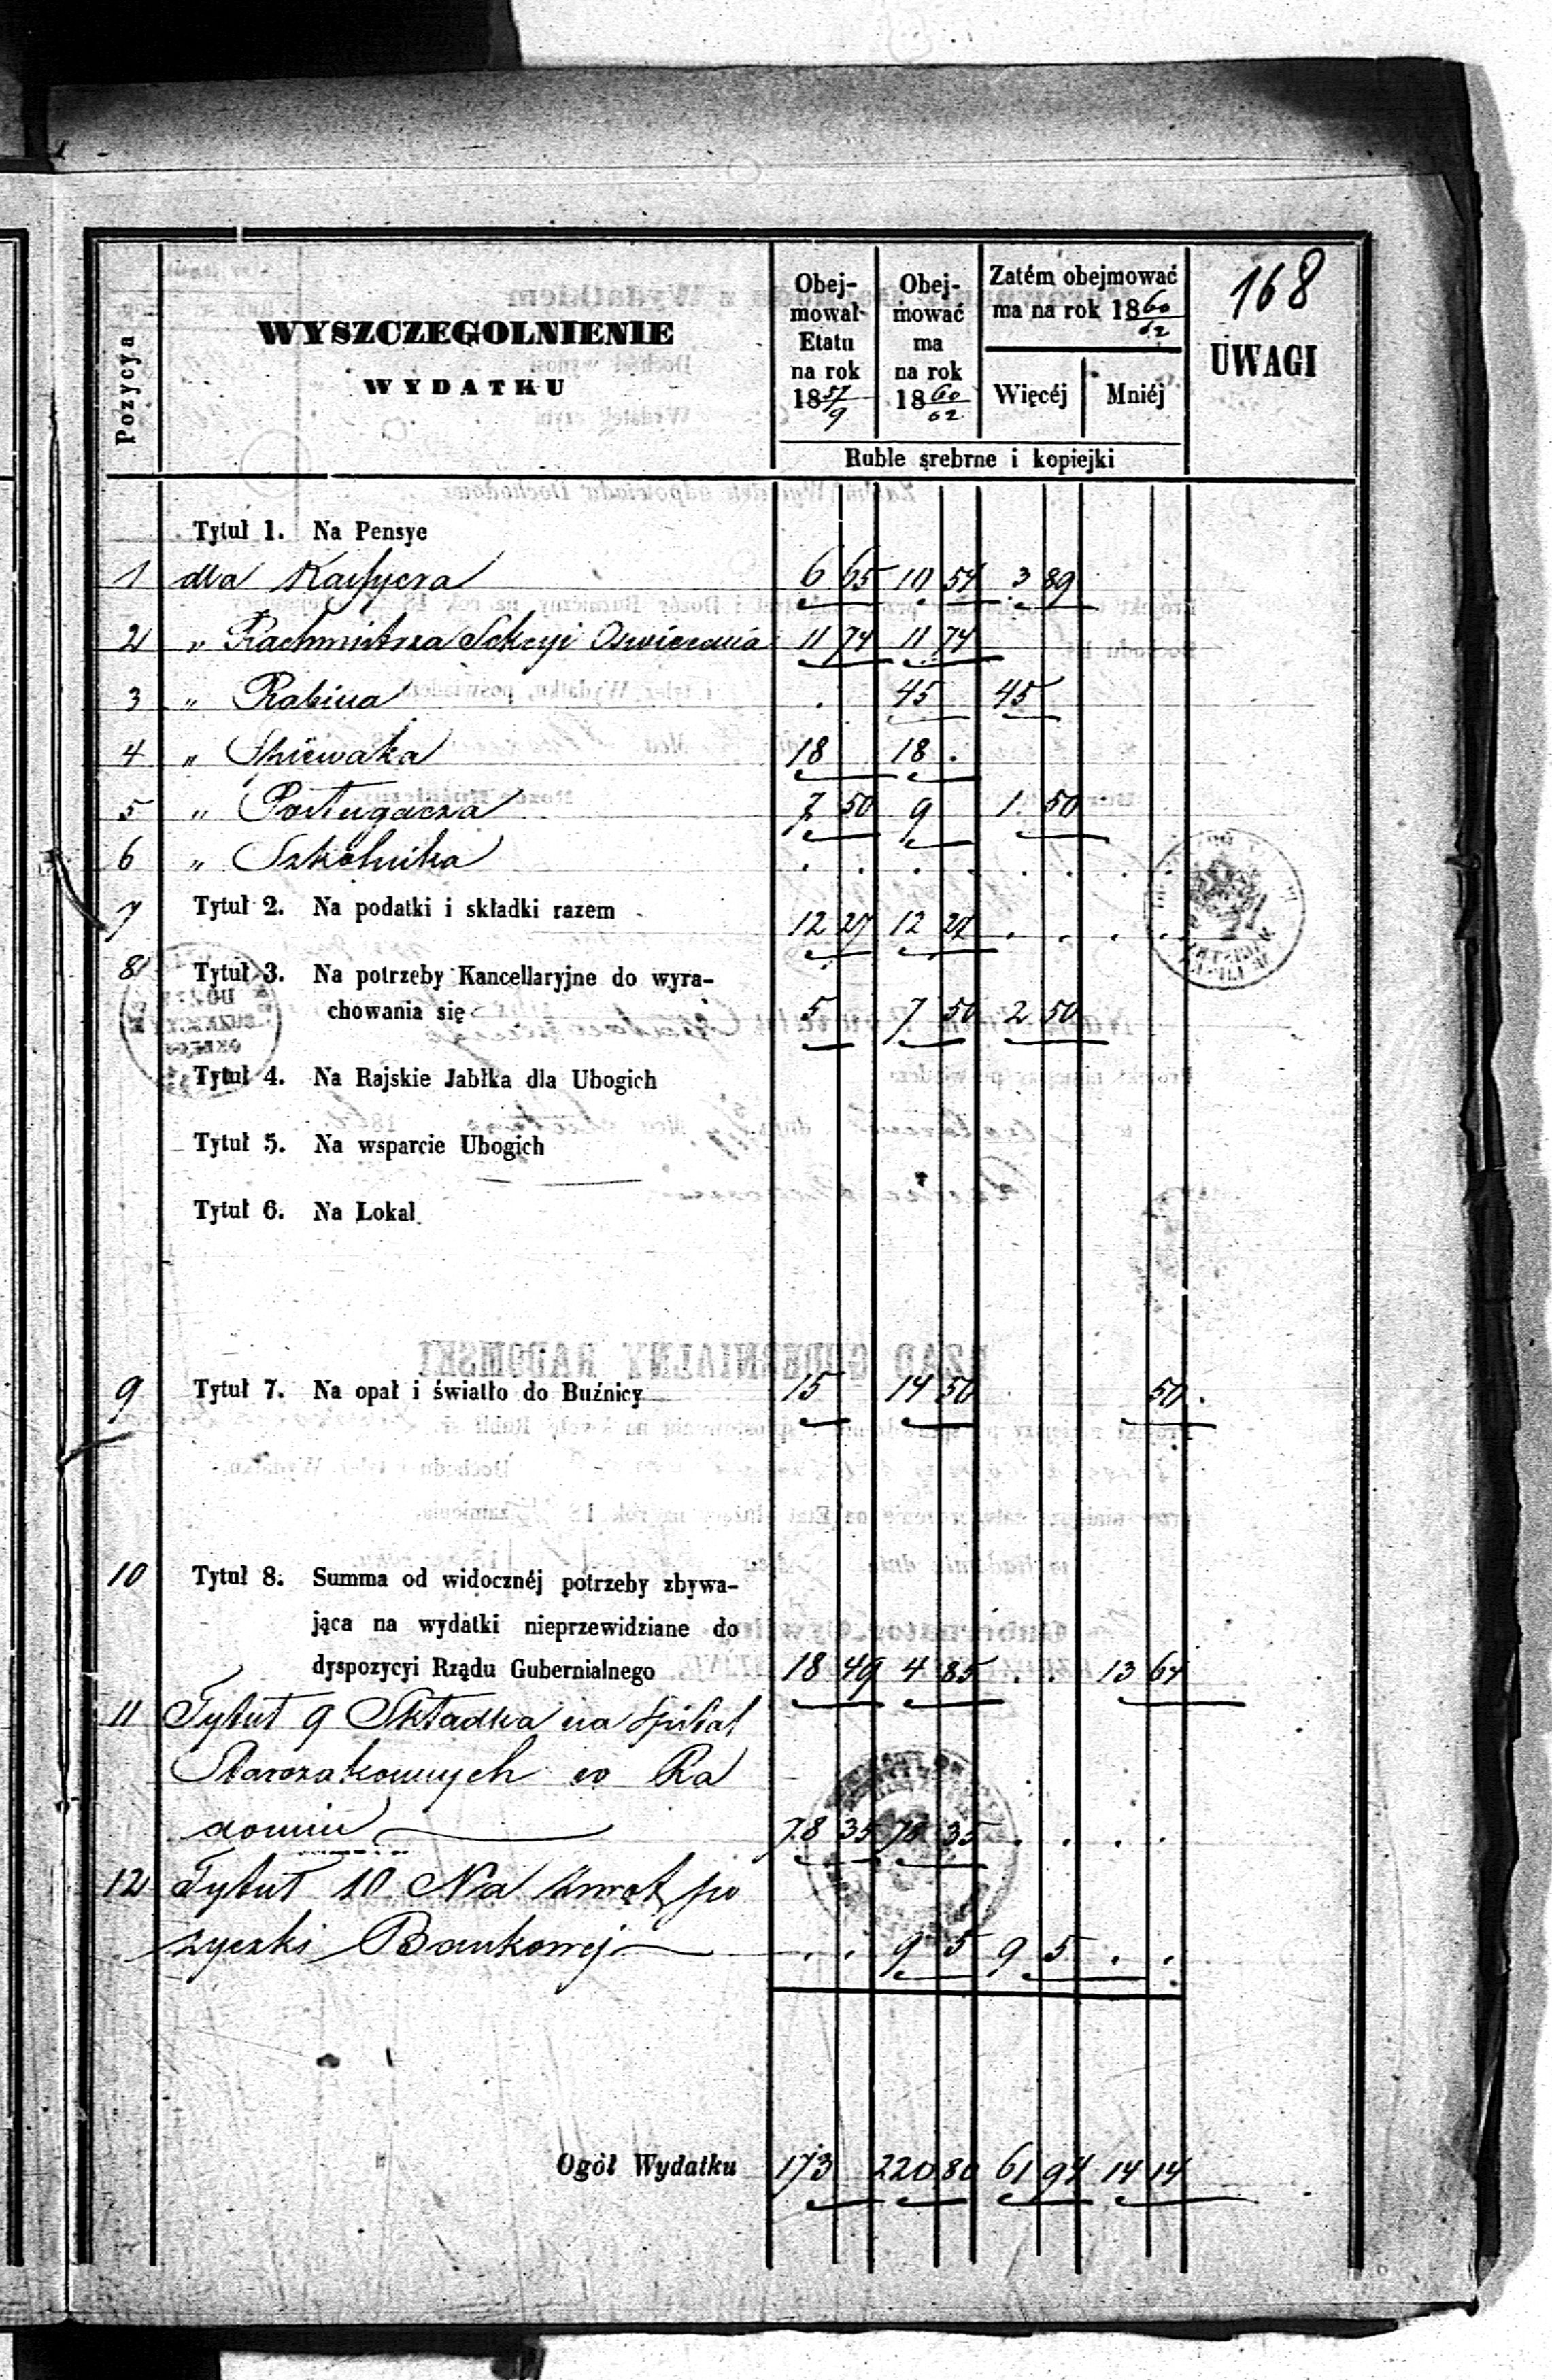 168
Pozycya
WYSZCZEGOLNIENIE
WYDATKU
Obej-
mował
Etatu
na rok
1857/9
Obej-
mować
ma
na rok
1860/62
Zatém obejmować
ma na rok 1860/62
Więcéj Mniéj
Ruble srebrne i kopiejki
UWAGI
Tytuł 1. Na Pensye
1 dla Kassyera 6 65 10 54 3 89
2 „ Rachmistrza Sekcyi Oswiecenia 11 74 11 74
3 „ Rabina . 45 45
4 „ Spiewaka 18 18 .
5 „ Posługacza 7 50 9 1 50
6 „ Szkolnika . . . . . . . .
7 Tytuł 2. Na podatki i składki razem 12 27 12 27 . . . .
8 Tytuł 3. Na potrzeby Kancellaryjne do wyra-
chowania się 5 7 50 2 50
Tytuł 4. Na Rajskie Jabłka dla Ubogich
Tytuł 5. Na wsparcie Ubogich
Tytuł 6. Na Lokal
9 Tytuł 7. Na opał i światło do Buźnicy 15 14 50 50
10 Tytuł 8. Summa od widocznéj potrzeby zbywa-
jąca na wydatki nieprzewidziane do
dyspozycyi Rządu Gubernialnego 18 49 4 85 . . 13 64
11 Tytuł 9 Składka na Spital
Starozakonnych w Ra
domiu 78 35 78 35 . . . .
12 Tytuł 10 Na zwrot po
zyczki Bankowej . . 9 5 9 5 . .
Ogół Wydatku 173 220 80 61 94 14 14